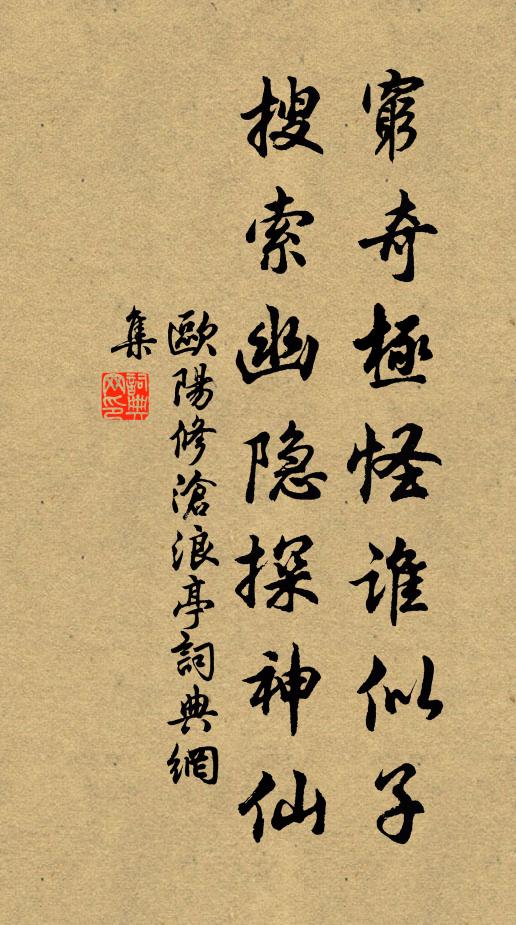 窮奇極怪誰似子
搜索幽隐探神仙
歐陽修滄浪亭詞典網
集
詞典網印